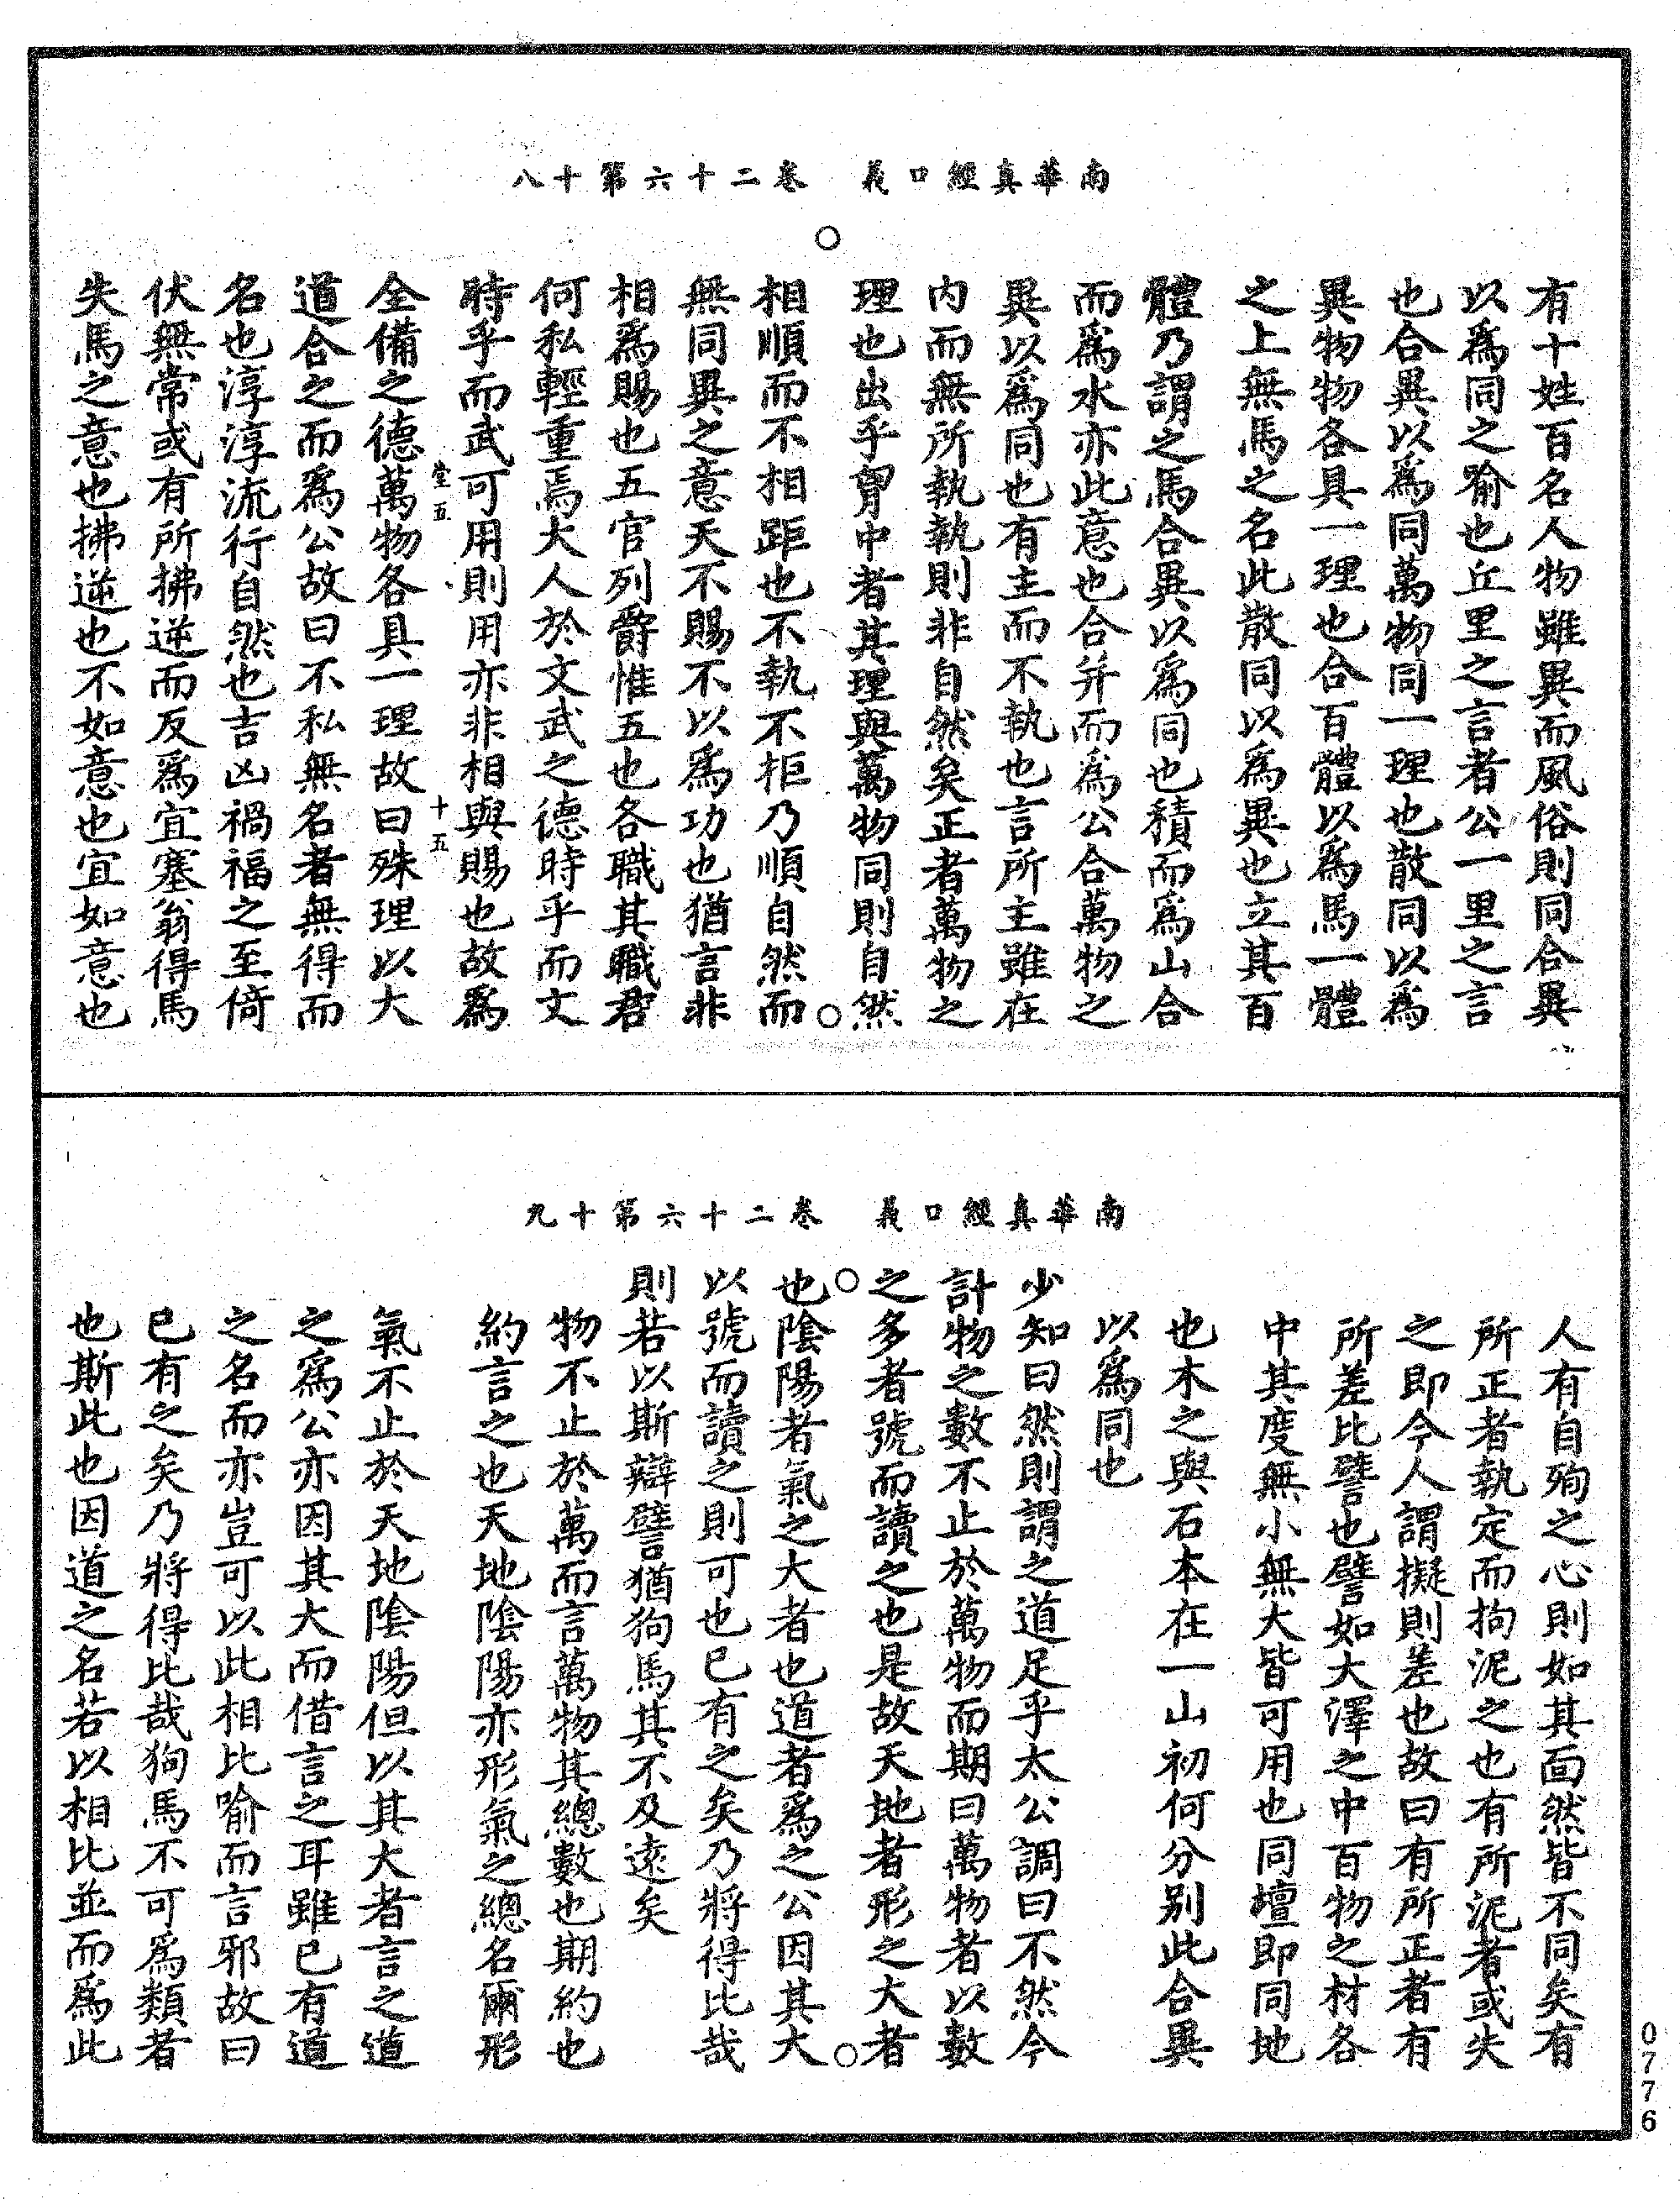 南華真經口義　卷二十六第十八
有十姓百名人物雖異而風俗則同合異
以爲同之喻也丘里之言者公一里之言
也合異以爲同萬物同一理也散同以爲
異物物各具一理也合百體以爲馬一體
之上無馬之名此散同以爲異也立其百
體乃謂之馬合異以爲同也積而爲山合
而爲水亦此意也合并而爲公合萬物之
異以爲同也有主而不執也言所主雖在
內而無所執執則非自然矣正者萬物之
理也出乎胷中者其理與萬物同則自然
相順而不相距也不執不拒乃順自然而
無同異之意天不賜不以爲功也猶言非
相爲賜也五官列爵惟五也各職其職君
何私輕重焉大人於文武之德時乎而文
時乎而武可用則用亦非相與賜也故爲
堂五　十五
全備之德萬物各具一理故曰殊理以大
道合之而爲公故曰不私無名者無得而
名也淳淳流行自然也吉凶禍福之至倚
伏無常或有所拂逆而反爲宜塞翁得馬
失馬之意也拂逆也不如意也宜如意也
南華真經口義　卷二十六第十九
人有自殉之心則如其面然皆不同矣有
所正者執定而拘泥之也有所泥者或失
之即今人謂擬則差也故曰有所正者有
所差比譬也譬如大澤之中百物之材各
中其度無小無大皆可用也同壇即同地
也木之與石本在一山初何分別此合異
以爲同也
少知曰然則謂之道足乎太公調曰不然今
計物之數不止於萬物而期曰萬物者以數
之多者號而讀之也是故天地者形之大者
也陰陽者氣之大者也道者爲之公因其大
以號而讀之則可也已有之矣乃將得比哉
則若以斯辯譬猶狗馬其不及遠矣
物不止於萬而言萬物其總數也期約也
約言之也天地陰陽亦形氣之總名爾形
氣不止於天地陰陽但以其大者言之道
之爲公亦因其大而借言之耳雖已有道
之名而亦豈可以此相比喻而言邪故曰
已有之矣乃將得比哉狗馬不可爲類者
也斯此也因道之名若以相比並而爲此
0776